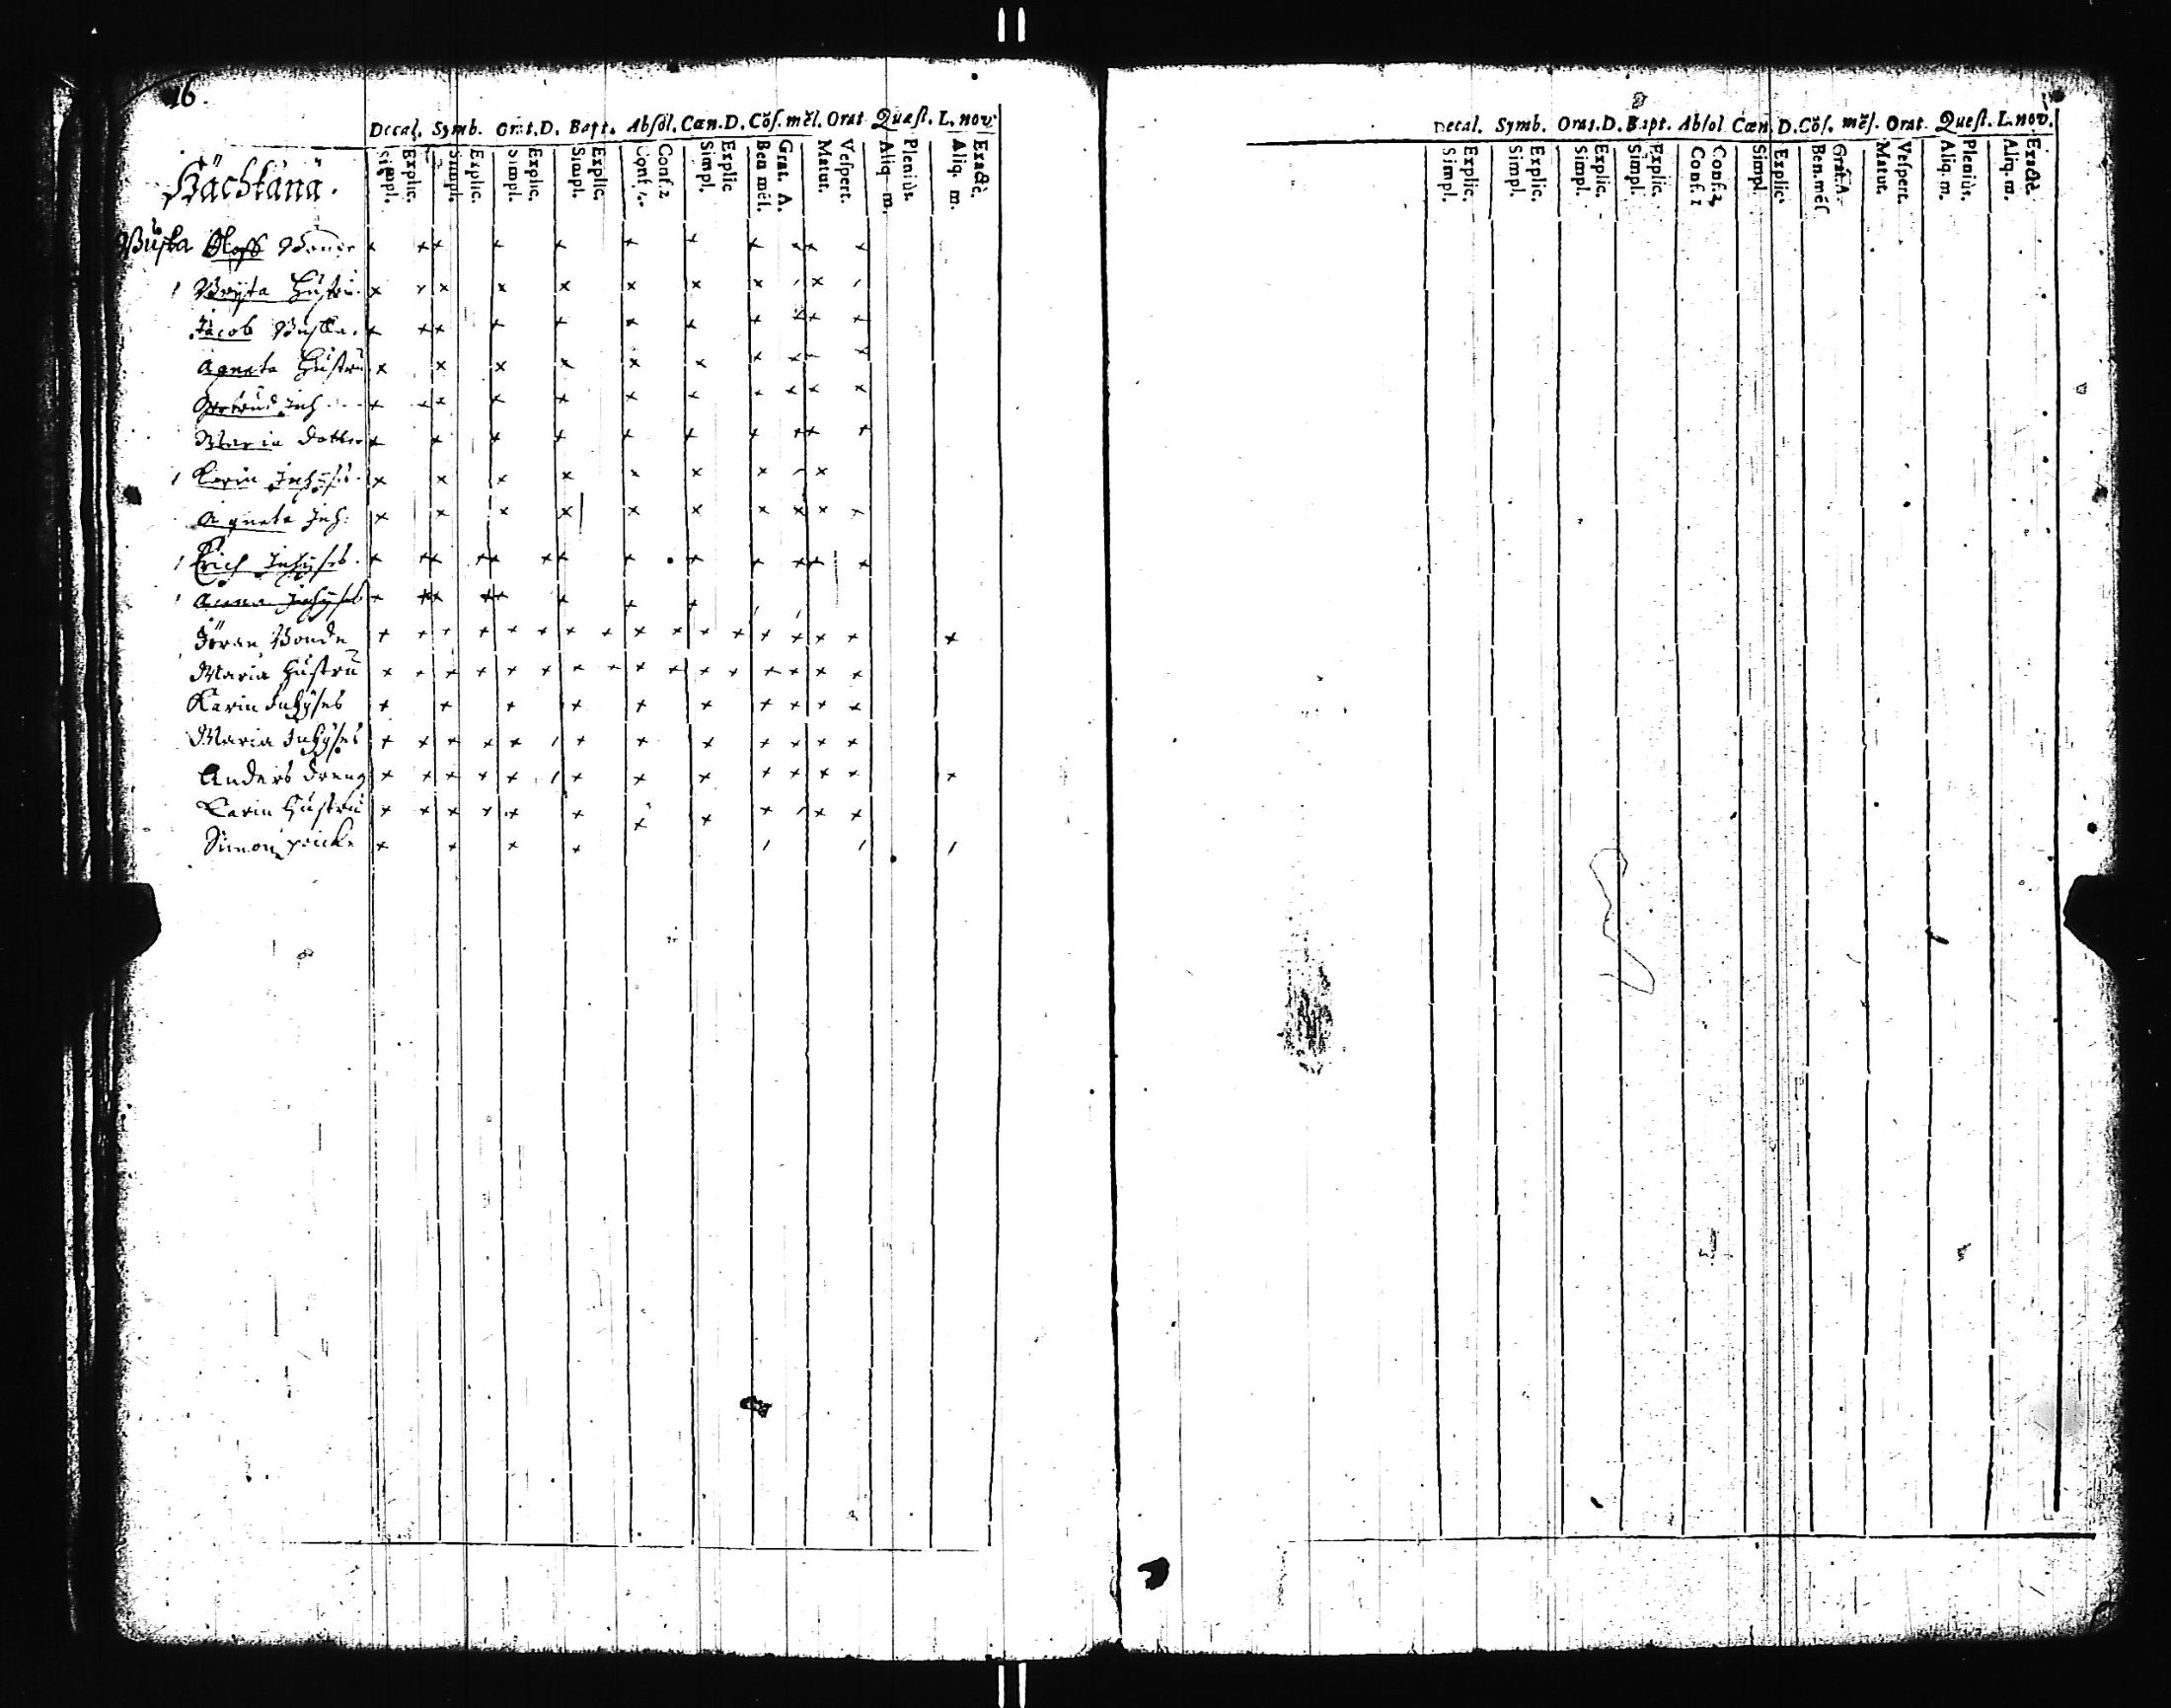 16.
Decal. Symb. Orat.D. Bapt. Absol. Cœn.D. Cōs. mēl. Orat Quæst. L. nov.
Simpl. Explic. Simpl. Explic. Simpl. Explic. Simpl. Explic. Conf. 1. Conf. 2 Simpl. Explic Ben mēs. Grat. A. Matut. Vespert. Aliq m. Pleniùs. Aliq. m. Exactè.
Kächtänä.
Buska Oloff Bonde
1 Bryta Hustru
Jacob Buska.
Agneta Hustru
Gertrud Inh
Maria dotter
1 Karin Inhyses
Agneta Inh:
1 Erich Inhyses
1 Anna Inhyses
Jöran Bonde
Maria Hustru
Karin Inhyses
Maria Inhyses
Anders dreng
Carin Hustru
Simon
Decal. Symb. Orat.D. Bapt. Absol Cœn D. Cōs. mēs. Orat. Quest. L. nov.
Simpl. Explic. Simpl. Explic. Simpl. Explic. Simpl. Explic. Conf. 1 Conf. 2 Simpl Explic Ben. mēs Grat. A. Matut. Vespert. Aliq. m. Pleniùs. Aliq. m. Exactè.